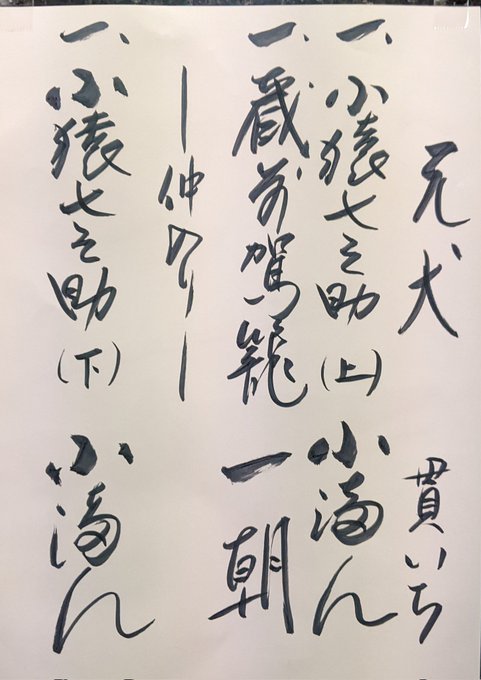 元犬 貫いち
一、小猿七之助（上） 小満ん
一、蔵前駕籠 一朝
―仲入り―
一、小猿七之助（下） 小満ん